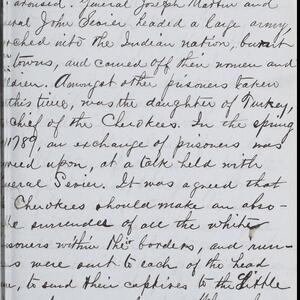 aroused. General Joseph Martin and
eral John Sevier headed a large army,
rched into the Indian nation, burnt
towns, and carried off their women and
ildren. Amongst other prisoners taken
this time, was the daughter of Turkey,
chief of the Cherokees. In the spring
1789, an exchange of prisoners was
reed upon, at a talk held with
neral Sevier. It was agreed that
Cherokees should make an abso-
te surrender of all the white
isoners within their borders, and run-
rs were sent to each of the head
n, to send their captives to the Little